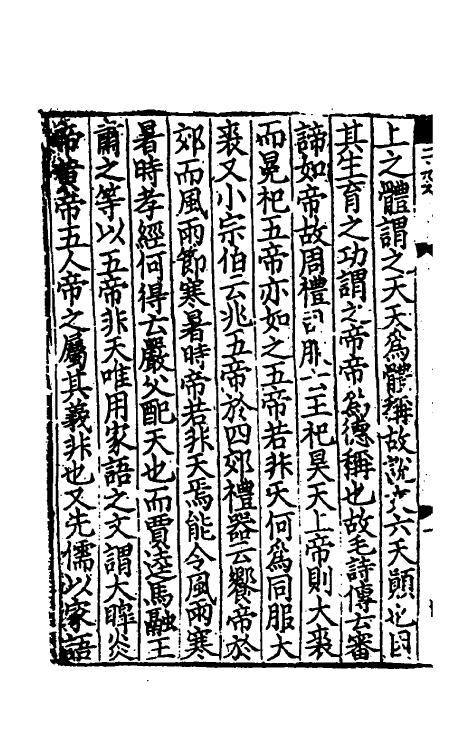 上之體謂之天天爲體稱故說文云天顛也因
其生育之功謂之帝帝爲德稱也故毛詩傳云審
諦如帝故周禮司服云王祀昊天上帝則大裘
而冕祀五帝亦如之五帝若非天何爲同服大
裘又小宗伯云兆五帝於四郊禮器云饗帝於
郊而風雨節寒暑時帝若非天焉能令風雨寒
暑時孝經何得云嚴父配天也而賈逵馬融王
肅之等以五帝非天唯用家語之文謂大皡炎
帝黄帝五人帝之屬其義非也又先儒以家語